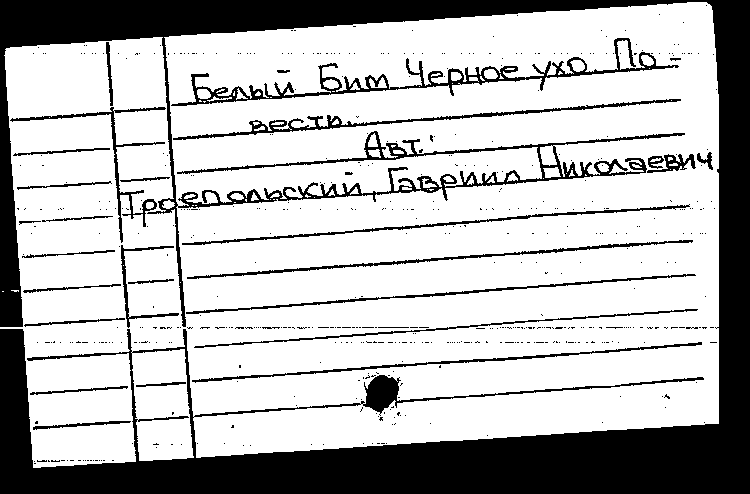 Белый Бим Черное ухо. По-
весть.
Авт.:
Троепольский, Гавриил Николаевич.